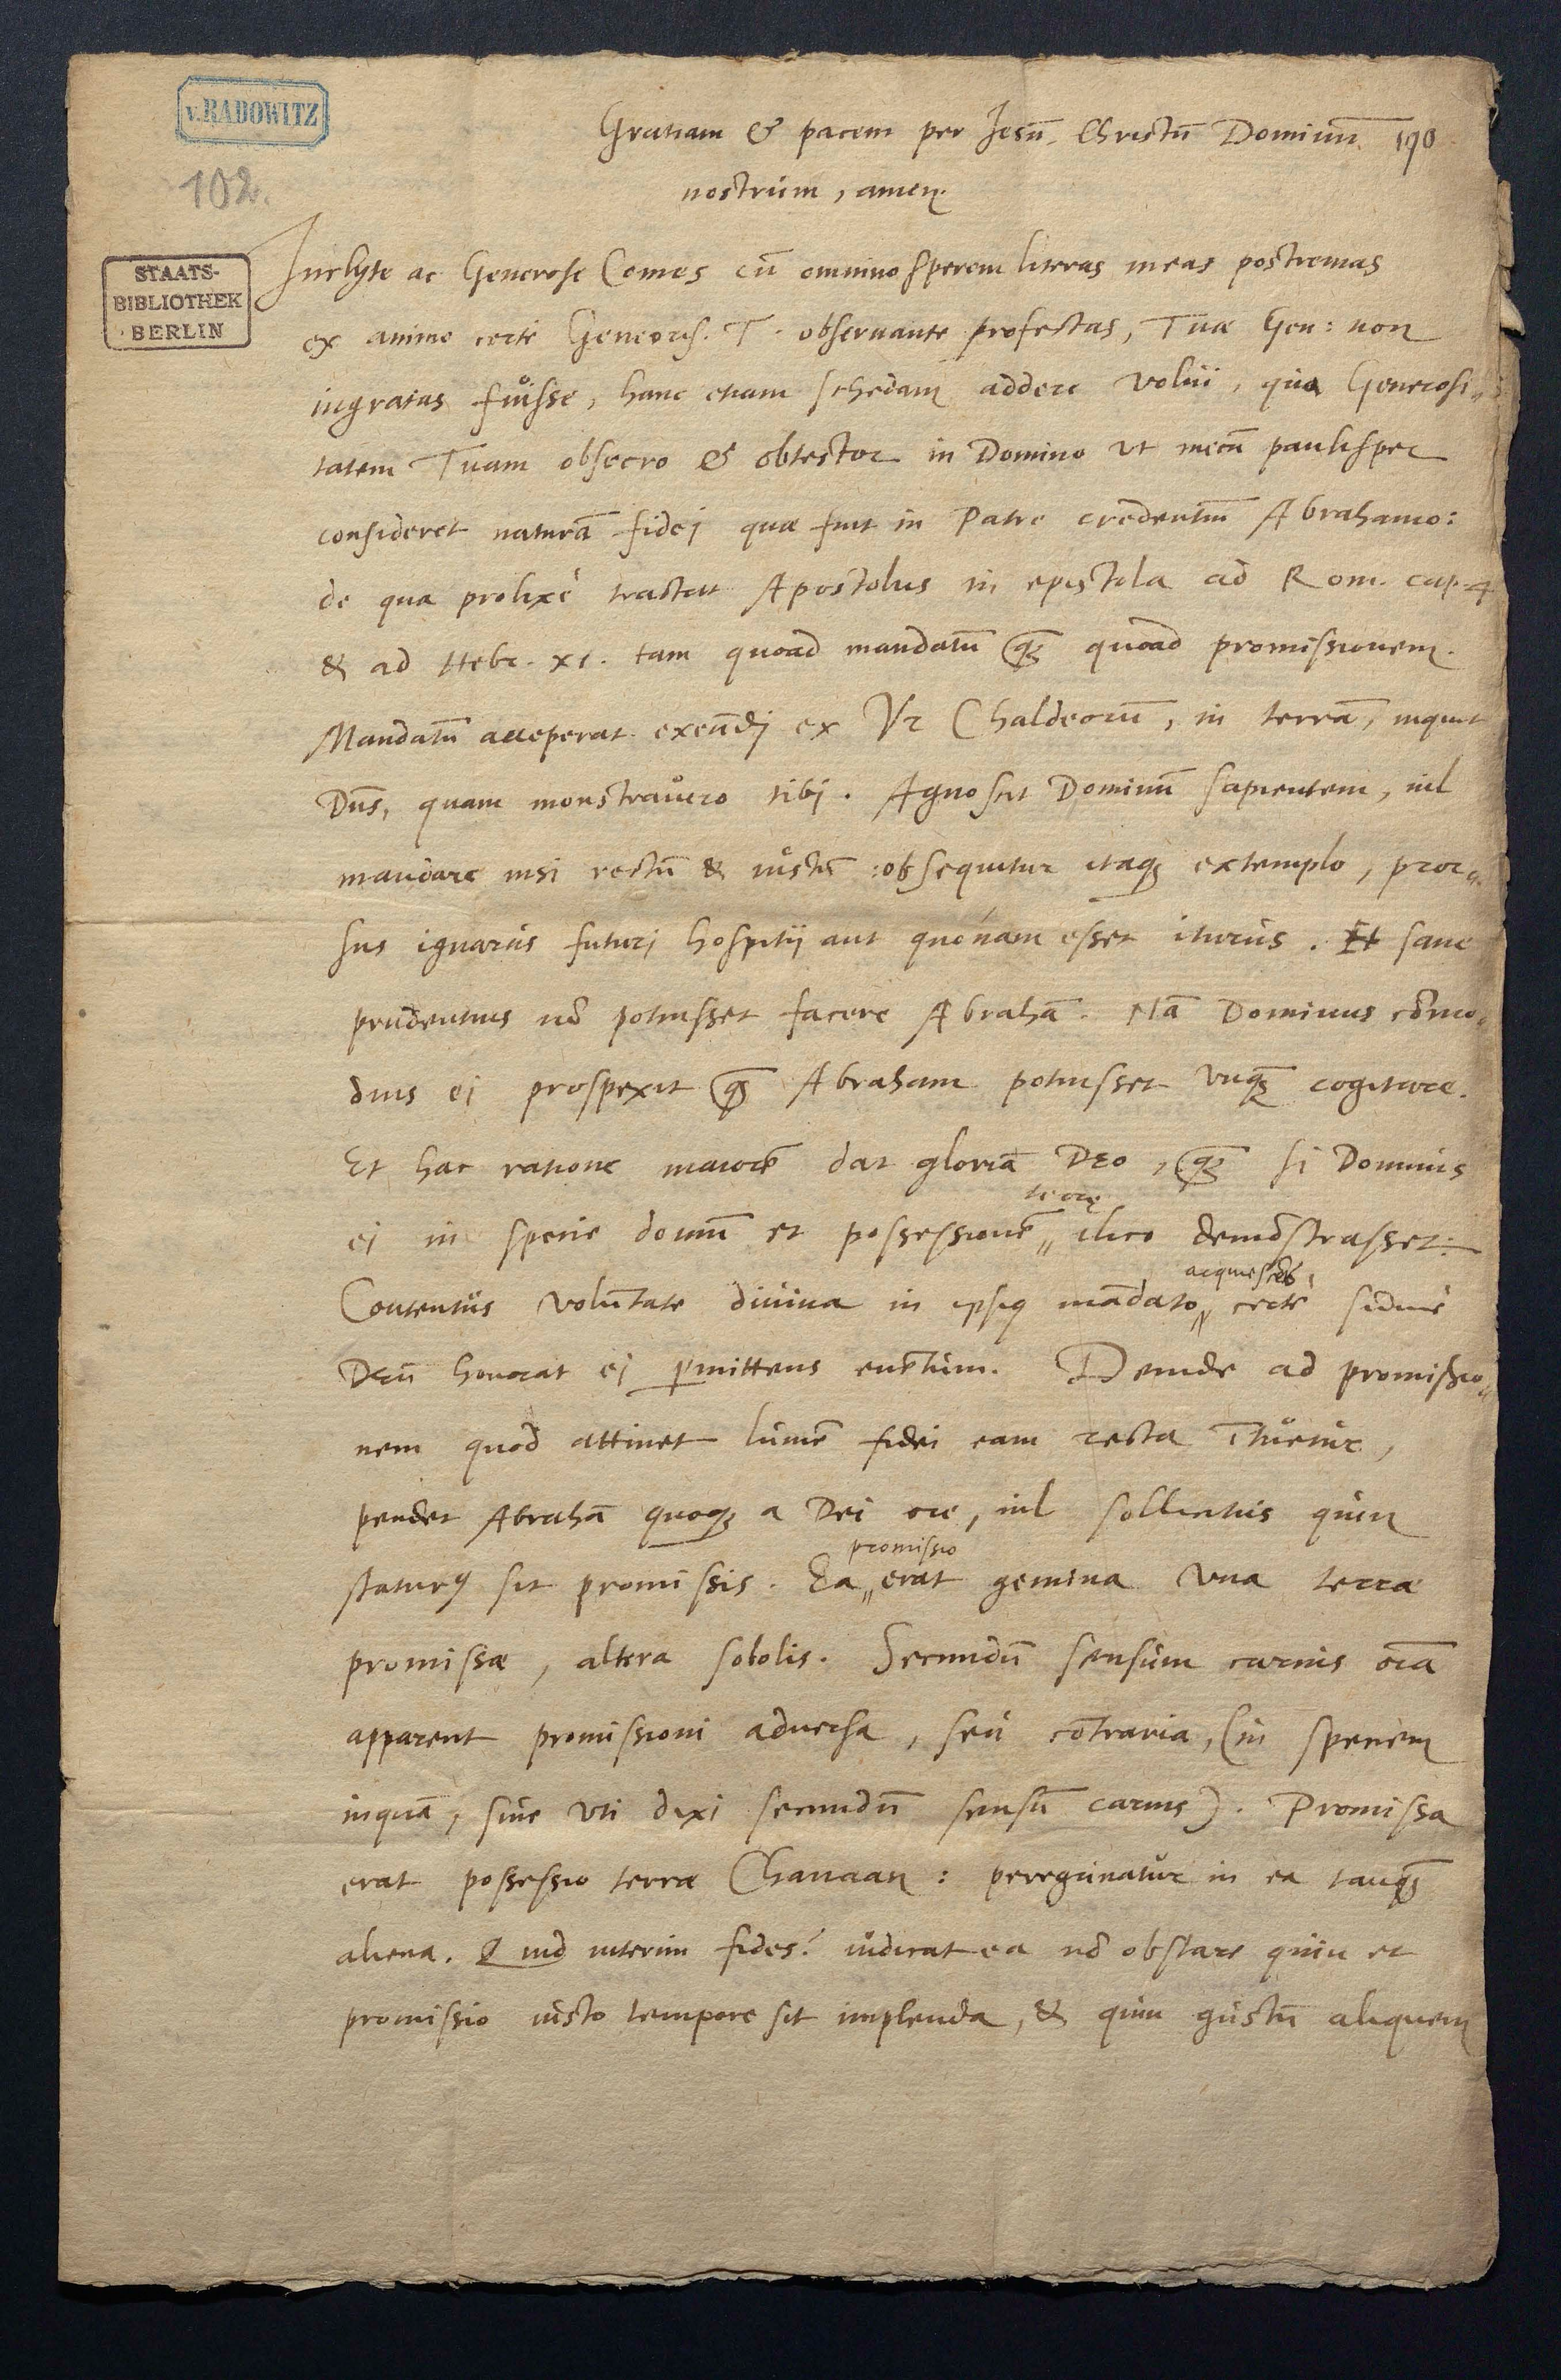 v. RADOWITZ
102.
STAATS-
BIBLIOTHEK
BERLIN
Gratiam & pacem per Jesū Christū Dominū 190
nostrum, amen.
Inclyte ac Generose Comes cū omnino sperem literas meas postremas
ex animo certè Generos. T. observante profectas, Tuæ Gen: non
ingratas fuisse, hanc etiam schedam addere volui, qua Generosi„
tatem Tuam obsecro & obtestor in Domino ut mecū paulisper
consideret naturā fidej quæ fuit in Patre credentiū Abrahamo:
de qua prolixè tractat Apostolus in epistola ad Rom. cap. 4
& ad Hebr. xi. tam quoad mandatū q̃ꝫ quoad promissionem.
Mandatū acceperat exeūdj ex Vr Chaldeorū, in terrā, inquit
Dn̄s, quam monstravero tibj. Agnoscit Dominū sapientem, nil
mandare nisi rectū & iustū: obsequitur itaqꝫ extemplo, pror„
sus ignarus futurj hospitii aut quónam esset iturus. Et sane
prudentius nō potuisset facere Abrahā. Nā Dominus cōmo„
dius ei prospexit q̃ꝫ Abraham potuisset unq̃ꝫ cogitare.
Et hac ratione maiorē dat gloriā DEO, q̃ꝫ si Dominus
terrę
ei in specie domū et possessionē„ ilico demōstrasset:
acquiescēs,
Contentus volūtate divina in ipsiꝰ mādato„ certè
Deū honorat ei ꝑmittens evētum. Deinde ad promissio„
nem quod attinet lumē fidei eam recta ītuetur,
pendet Abrahā quoqꝫ a Dei ore, nil sollicitus quin
promissio
staturꝰ sit promissis. Ea„ erat gemina una terræ
promissæ, altera sobolis. Secundū sensum carnis oīa
apparent promissioni adversa, seu cōtraria, (in speciem
inquā, sive uti dixi secundū sensū carnis). Promissa
erat possessio terræ Chanaan: peregrinatur in ea tanq̃ꝫ
aliena. Quid interim fides? iudicat ea nō obstare quin et
promissio iusto tempore sit implenda, & quin gustū aliquem